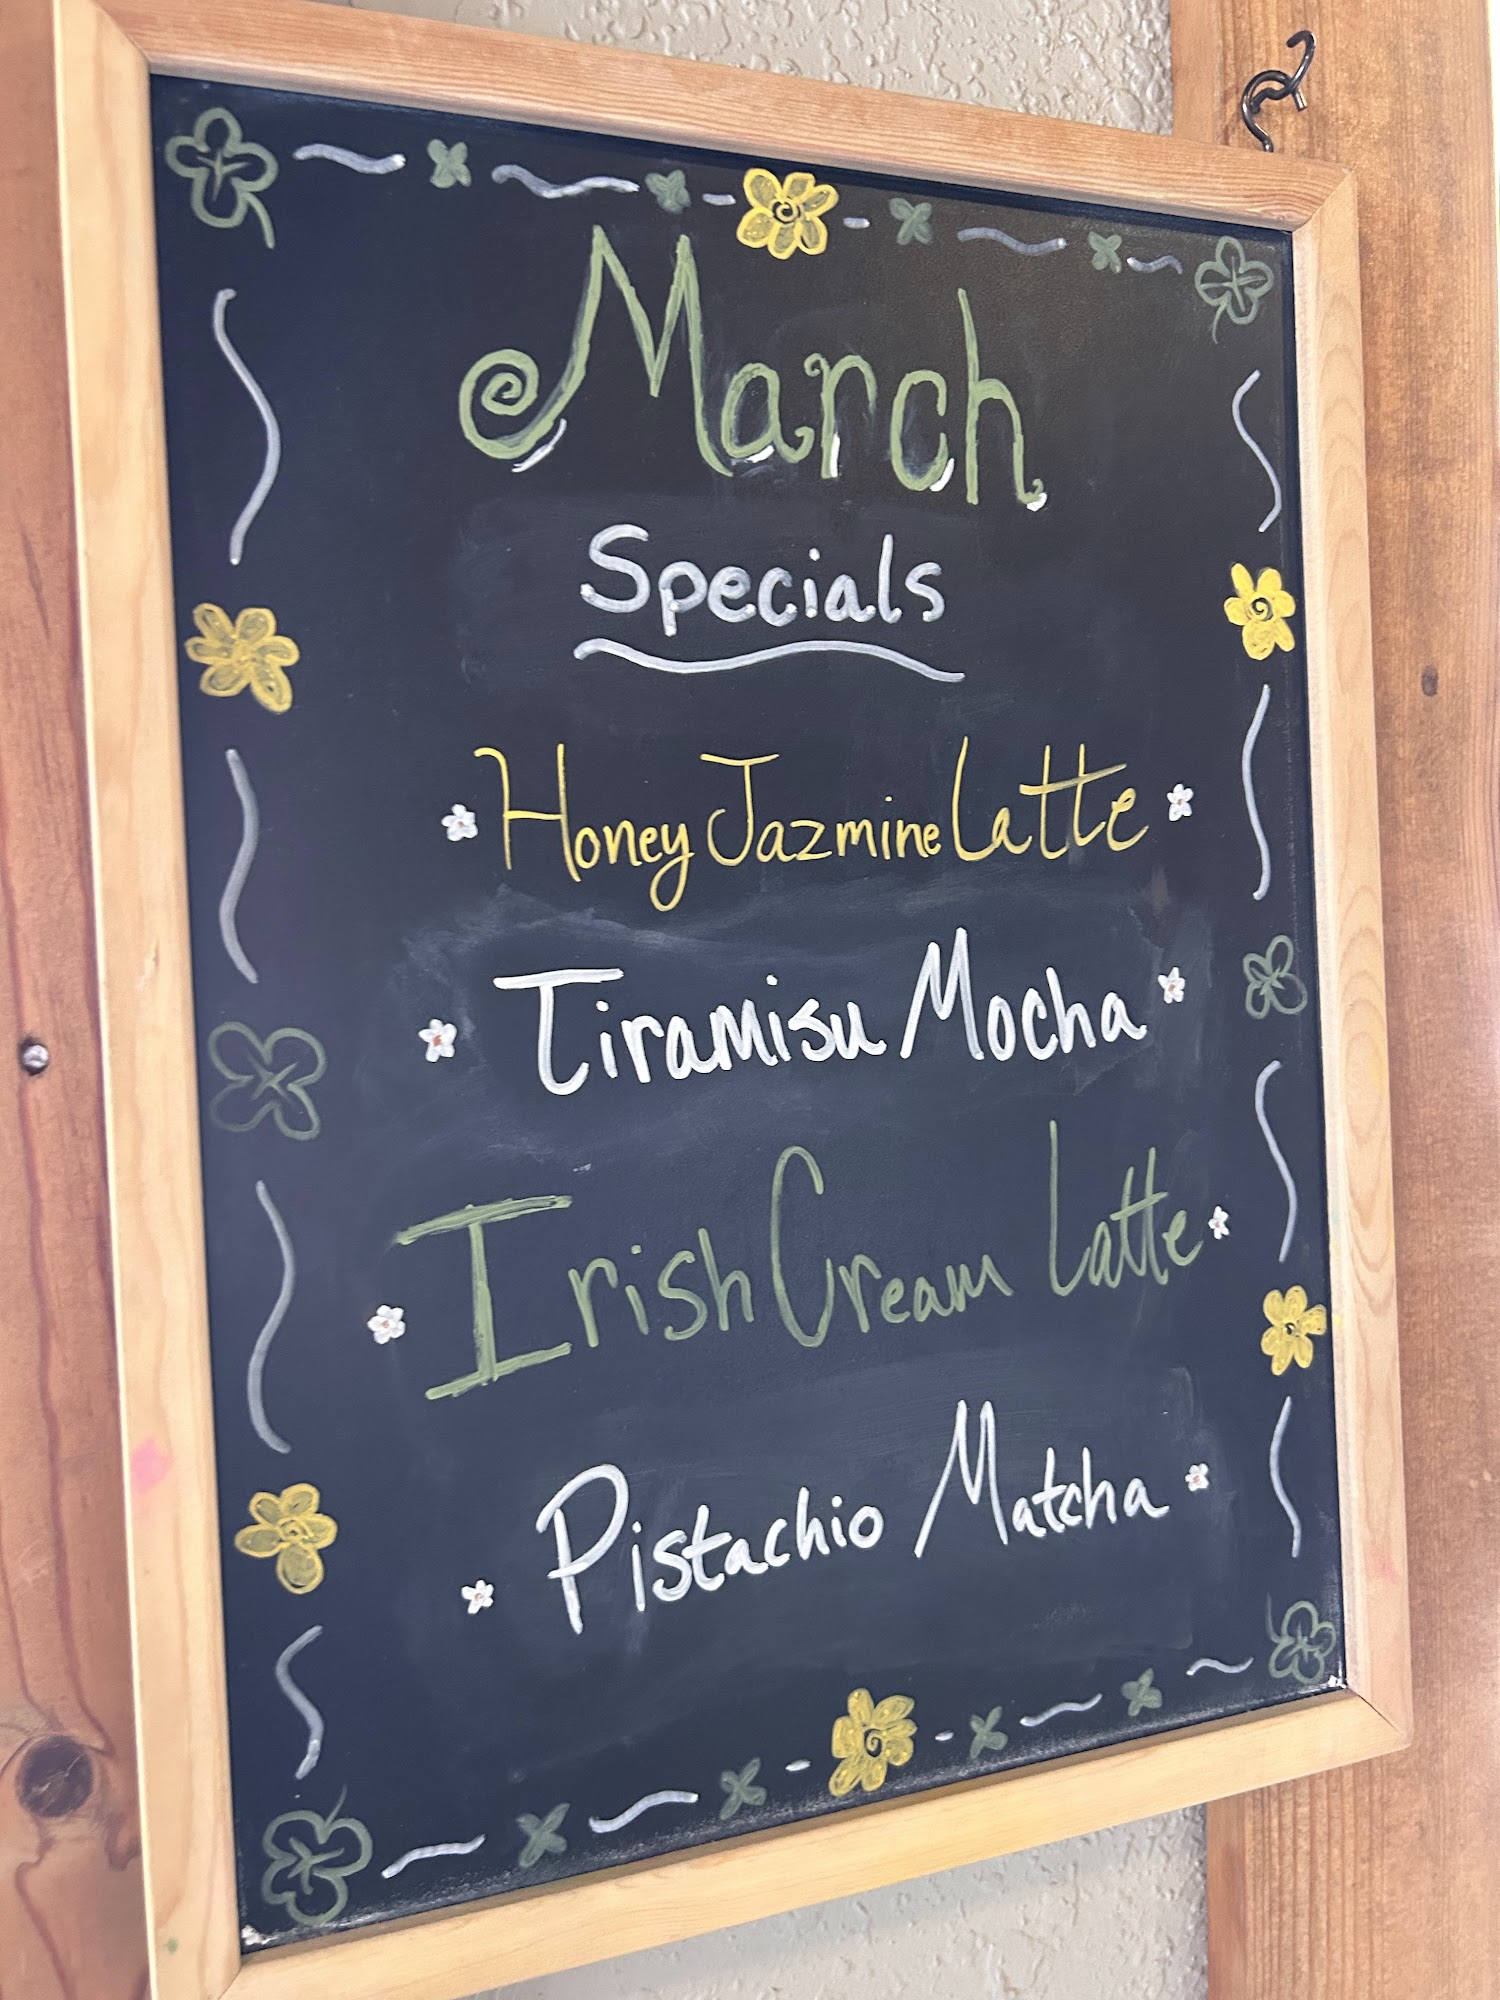 March
Specials
Honey Jazmine Latte
Tiramisu Mocha
Irish Cream Latte
Pistachio Matcha